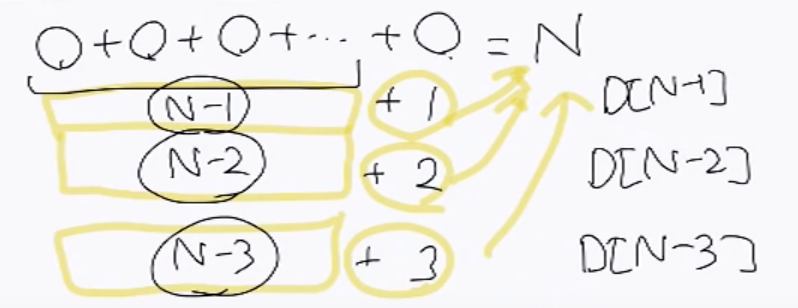 O+O+O+... +O = N
N-1 + 1 D[N-1]
N-2 + 2 D[N-2]
N-3 + 3 D[N-3]